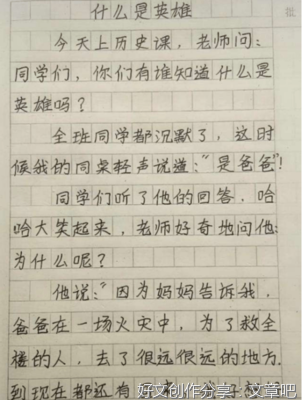 什么是英雄
批
今天上历史课，老师问：
同学们，你们有谁知道什么是
英雄吗？
全班同学都沉默了，这时
候我的同桌轻声说道：“是爸爸”！
同学们听了他的回答，哈
哈大笑起来，老师好奇地问他：
为什么呢？
他说：“因为妈妈告诉我，
爸爸在一场火灾中，为了救全
楼的人，去了很远很远的地方，
到现在都还有
好文创作分享－文章吧